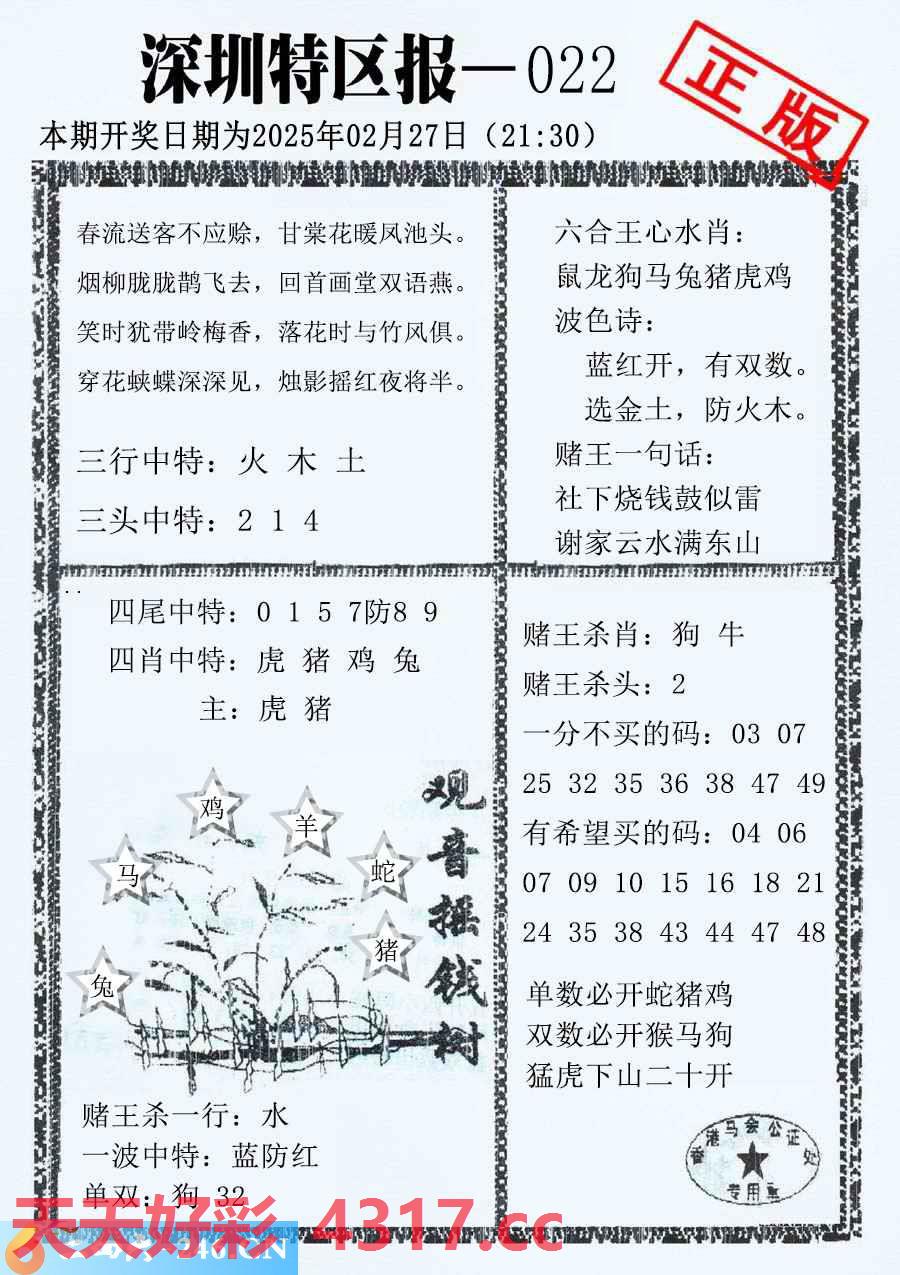 深圳特区报—022
正版
本期开奖日期为2025年02月27日（21:30）
春流送客不应赊，甘棠花暖凤池头。
烟柳胧胧鹊飞去，回首画堂双语燕。
笑时犹带岭梅香，落花时与竹风俱。
穿花蛱蝶深深见，烛影摇红夜将半。
三行中特：火 木 土
三头中特：2 1 4
六合王心水肖：
鼠龙狗马兔猪虎鸡
波色诗：
蓝红开，有双数。
选金土，防火木。
赌王一句话：
社下烧钱鼓似雷
谢家云水满东山
四尾中特：0 1 5 7防8 9
四肖中特：虎 猪 鸡 兔
主：虎 猪
鸡
羊
马
蛇
猪
兔
观音摇钱树
赌王杀一行：水
一波中特：蓝防红
单双：狗 32
赌王杀肖：狗 牛
赌王杀头：2
一分不买的码：03 07
25 32 35 36 38 47 49
有希望买的码：04 06
07 09 10 15 16 18 21
24 35 38 43 44 47 48
单数必开蛇猪鸡
双数必开猴马狗
猛虎下山二十开
香港马会公证处
专用章
天天好彩 4317.cc